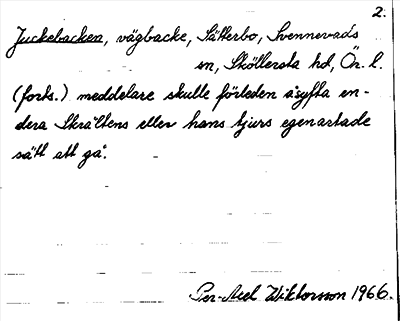 2.
Juckebacken, vägbacke, Sätterbo, Svennevads
sn, Sköllersta hd, Ör. l.
(forts.) meddelare skulle förleden åsyfta en-
dera Skråltens eller hans tjurs egenartade
sätt att gå.
Per-Axel Wiktorsson 1966.